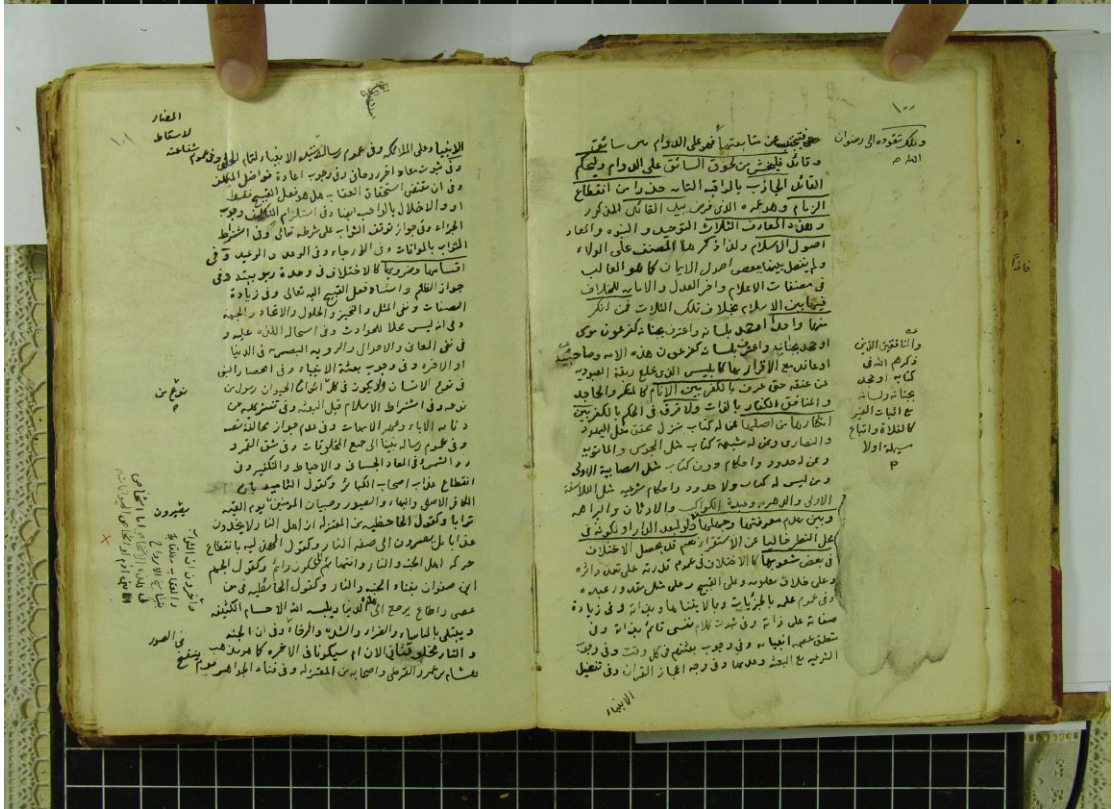 ١٠٠
وذلك تقوده الى رضوان
الله
من سائق
وقائد فليخش من لحوق السائق على الدوام وليحكم
القائد الجاذب بالواقية التامه حذرا من انقطاع
الزمام وهو عمره الذى فرض بيد القائد المذكور
وهذه المعارف الثلاث التوحيد والنبوه والمعاد
اصول الاسلام ولذا ذكرها المصنف على الولاء
ولم يفصل بينها ببعض اصول الايمان كما هو الغالب
فى مصنفات الاعلام واخر العدل والامامه للخلاف
فيها بين الاسلام بخلاف تلك الثلاث فمن انكر
منها واحدا او جحد بلسانه واعترف بجنانه كفرعون موسى
او جحد بجنانه واعترف بلسانه كفرعون هذه الامه وصاحبه
او عاند مع الاقرار بها كابليس الذى خلع ربقة العبوديه
عن عنقه حق عرف بالكفر بين الانام كالمنكر والجاحد
والمنافق الكفار بالذات ولا فرق فى الحكم بالكفر بين
انكارها من اصلها ممن له كتاب منزل محقق مثل اليهود
والنصارى وممن له شبهة كتاب مثل المجوس والمانويه
وممن له حدود واحكام دون كتاب مثل الصابية الاولى
وممن ليس له كتاب ولا حدود واحكام شرعيه مثل الفلاسفة
الاولى والدهريه وعبدة الكواكب والاوثان والبراهمه
وبين عدم معرفتها وجهلها ولو لبعد الدار او لكونه فى
محل النظر خاليا عن الاستقرار نعم قد يحصل الاختلاف
فى بعض شعوبها كالاختلاف فى عموم قدرته على
وعلى خلاف معلومه وعلى القبيح وعلى مثل مقدور عبده
وفى عموم علمه بالجزئيات وبما لا يتناها وبذاته وفى زيادة
صفاته على ذاته وفى ثبوت كلام نفسى قائم بذاته وفى
متعلق عصمة انبيائه وفى وجوب بعثتهم فى كل وقت وفى وجوب
الشريعه مع البعثه وعدمها وفى وجه اعجاز القران وفى تفضيل
الانبياء
والمنافقين الذين
ذكرهم الله فى
كتابه او جحد
بجنانه ولسانه
مع اثبات الغير
كالغلاة واتباع
مسيلمة اولا
الانبياء وعلى الملائكه وفى عموم رسالة سيد الانبياء لتمام الخلق وفى عموم
شفاعته
لاسقاط
المضار
وفى ثبوت معاد اخر روحانى وفى وجوب اعادة فواضل المكلف
وفى ان مقتضى استحقاق العقاب هل هو فعل القبيح فقط
او والاخلال بالواجب ايضا وفى استلزام التكليف وجوب
الجزاء وفى جواز توقف الثواب على شرط تعالى وفى اشتراط
الثواب بالموافات وفى الارجاء وفى الوعد والوعيد وفى
اقسامها وضروبها كالاختلاف فى وحدة ربوبيته وفى
جواز الظلم واسناد فعل القبيح اليه تعالى وفى زيادة
الصفات ونفى المثل والتحيز والحلول والاتحاد والجهة
وفى انه ليس محلا للحوادث وفى استحالة اللذه عليه و
فى نفى المعانى والاحوال والرويه البصريه فى الدنيا
او الاخره وفى وجوب بعثة الانبياء وفى انحصار النبى
فى نوع الانسان او يكون فى كل انواع الحيوان رسول من
نوعه وفى اشتراط الاسلام قبل البعثه وفى تنزيهه عن
دنائه الاباء وعهر الامهات وفى عدم جواز مخالفته
وفى عموم رسالة نبينا الى جميع المخلوقات وفى شق القمر و
رد الشمس وفى المعاد الجسمانى والاحباط والتكفير وفى
انقطاع عذاب اصحاب الكبائر وكقول الثامنيه بان
الكافر الاصلى والبهايم والطيور وصبيان المومنين يوم القيمه
ترابا وكقول الجاحظيه من المعتزله ان اهل النار لا يخلدون
عذابا بل يصيرون الى صفه النار وكقول بانقطاع
حركه اهل الجنه والنار وكقول الجهم
ابن صفوان بفناء الجنه والنار وكقول الحائطيه فى من
عصى واطاع يرجع الى الدنيا ويلبسه الله الاجسام الكثيفه
ويبتلى بالباساء والضراء والشده والرخاء وفى ان الجنه
والنار مخلوقتان الان ام سيكونا فى الاخره كما هو مذهب
هشام بن عمرو الفوطى واصحابه من المعتزله وفى فناء الجواهر يوم ينفخ
فى الصور
يصيرون